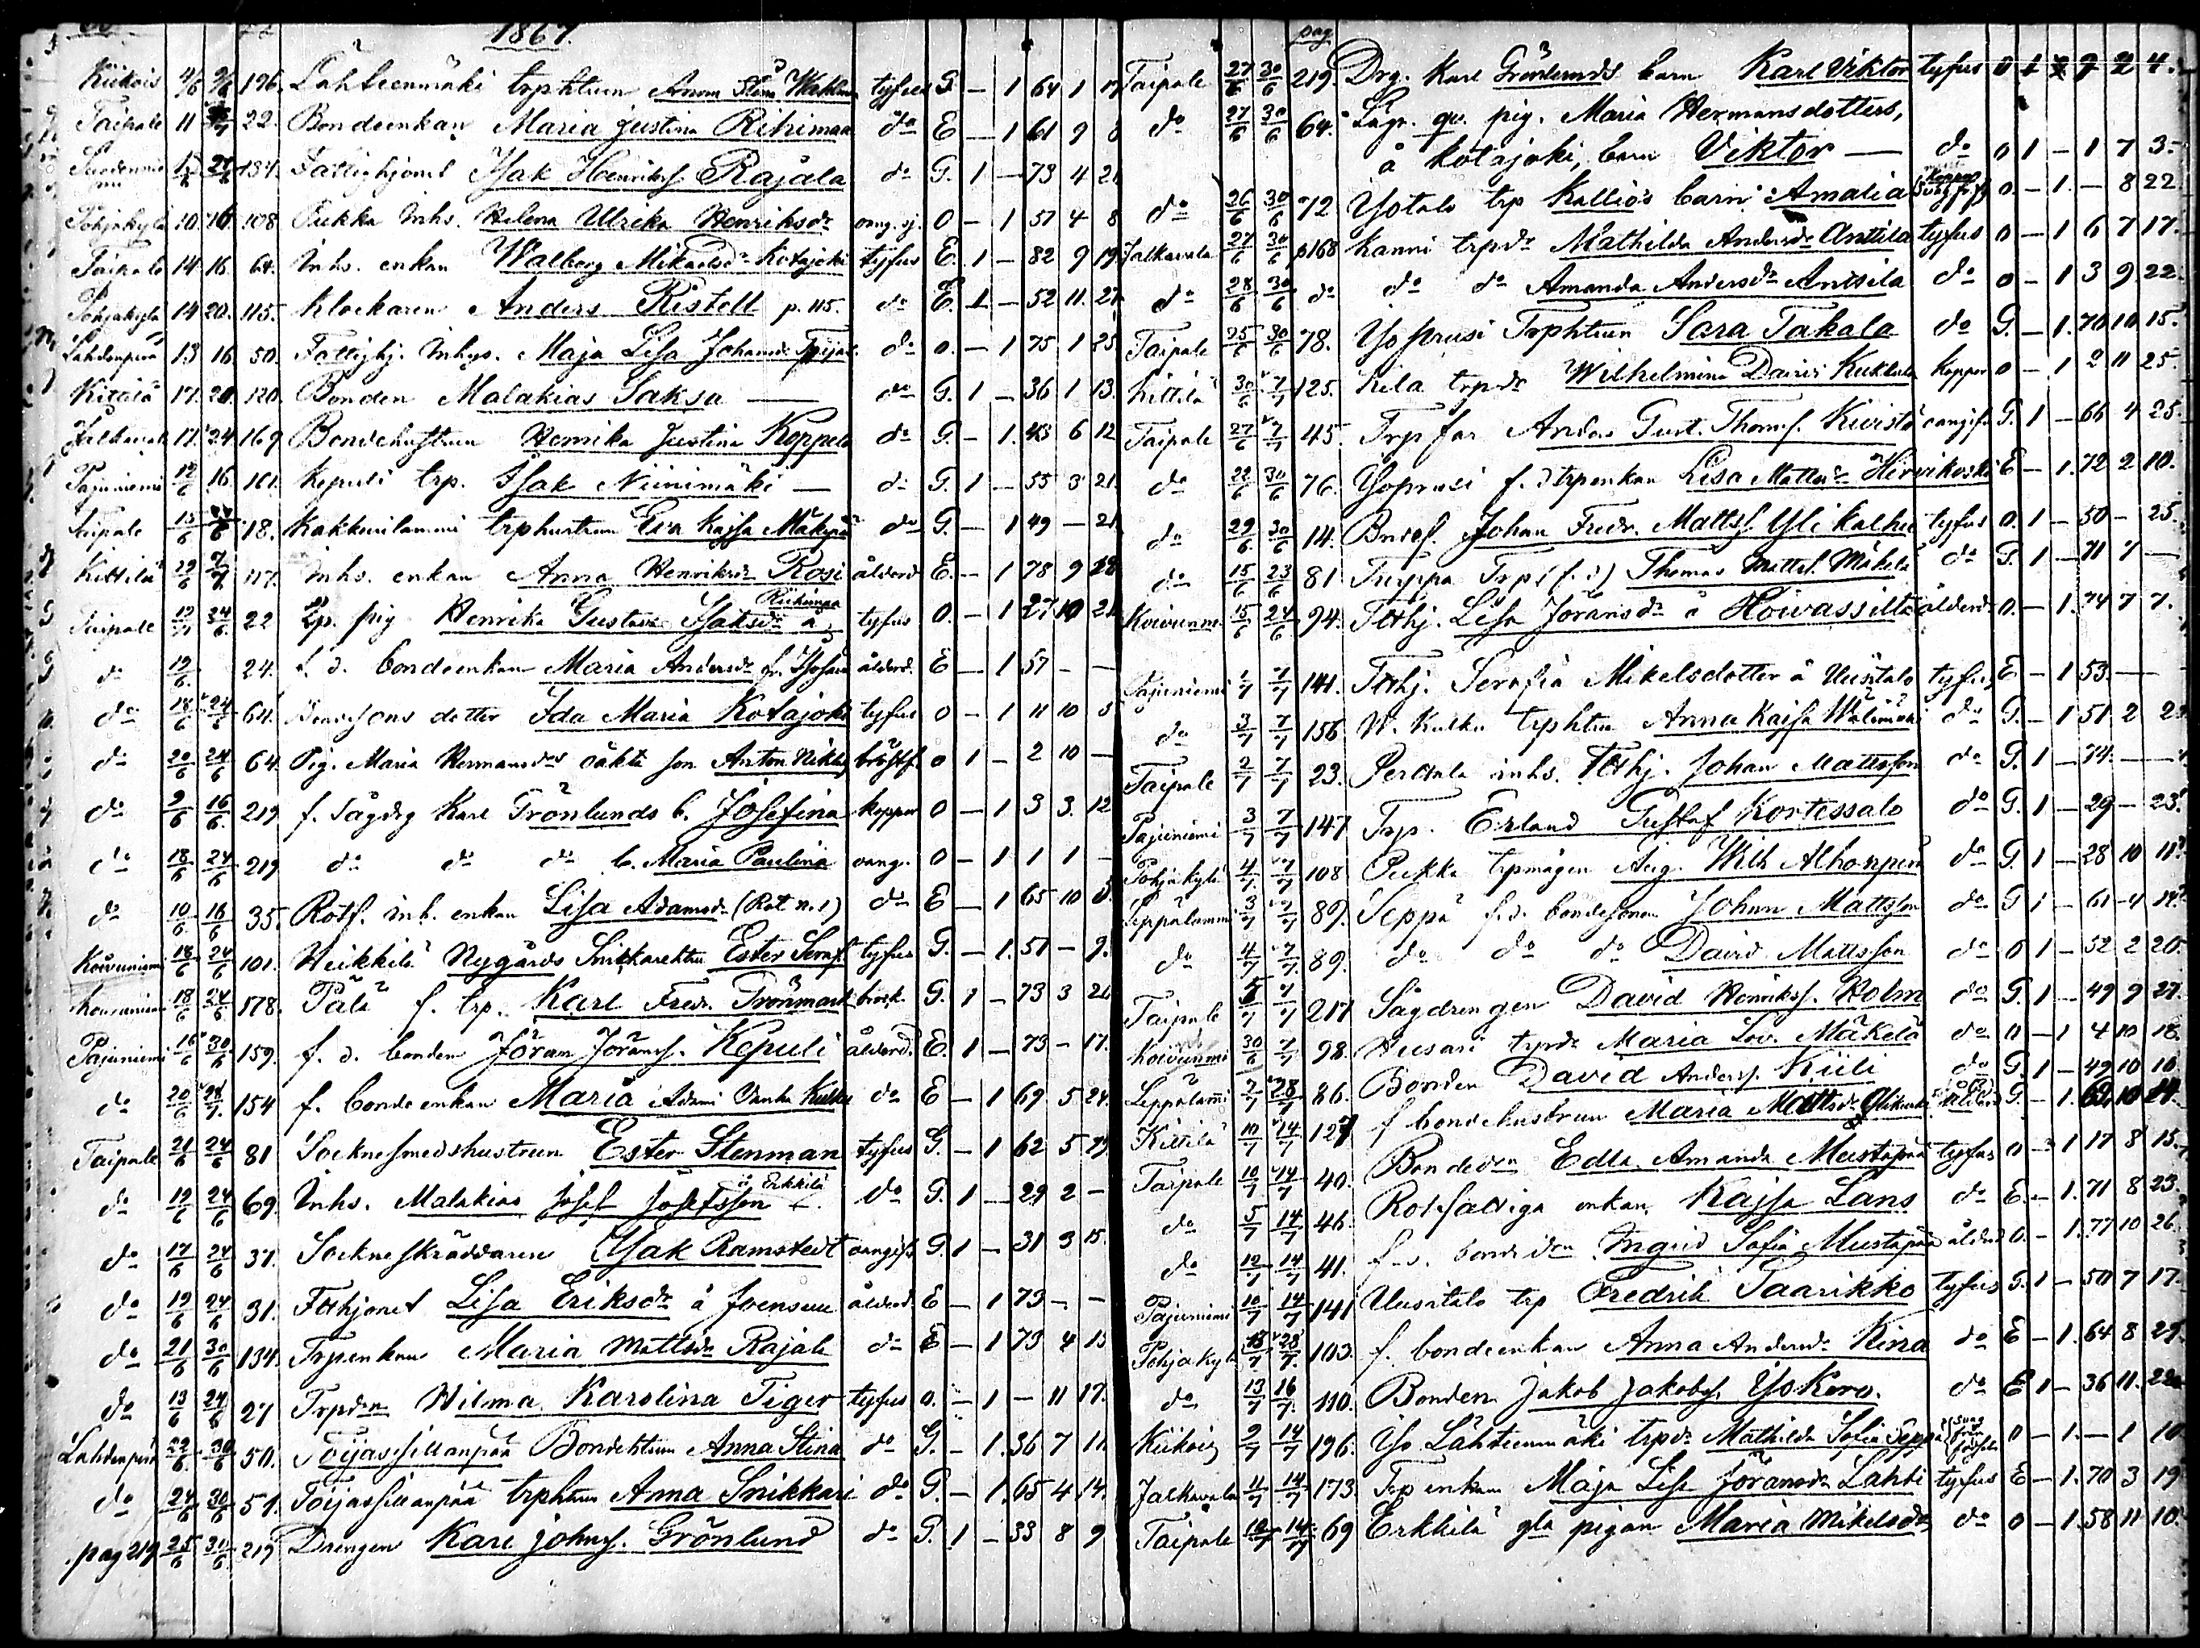 1867.
Kiikois 4/6 9/6 196. Lahteenmäki trphtrun Anna Stina tyfus G. – 1 64 1 17
Taipale 11 22. Bondeenkan Maria Justina Rihimaa do E – 1 61 9 8
134. Fattighjonet Isak Henrikss. Rajala do G. 1 – 73 4 21
Pohjakylä 10. 16. 108 Pukka Inhs. Helena Ulreka Henriksdr 0 – 1 57 4 8
Taipale 14. 16. 64. Inhs. enkan Walborg Mikaelsdr Kotajoki tyfus E. 1 – 82 9 19
Pohjakylä 14 20. 115. Klockaren Anders Ristell p. 115. do E. 1 – 52 11. 27
Lahdenperä 13 16 50. Fattighj. Inhys. Maja Lisa Johansdr do 0. – 1 75 1 25
Kittilä 17. 20. 120. Bonden Malakias Saksa — do G. 1 – 36 1 13.
Jalkavala 17. 24. 169 Bondehustrun Henrika Justina Koppala do G. – 1. 43 6 12
Pajuniemi 12/6 16. 161. Kepuli trp. Isak Niinimäki — do G. 1 – 55 3 21.
Taipale 15/6 18. Kakkurilammi trphustrun Eva Kajsa Mäkipää do G. – 1 49 – 21
Kittilä 29/6 7/7 117. Inhs. enkan Anna Henriksdr Rosi ålderd. E. – 1 78 9 28
Taipale 24/6 22 pig Henrika Gustava Isaksdr å Riihimaa tyfus 0. – 1 27 10 21
do 19/6. 24. f. d. bondeenkan Maria Andersdr ålderd. E – 1 57 – –
do 18/6 24/6 64. Bondesons dotter Ida Maria Kotajoki tyfus 0 – 1 11 10 5
do 20/6 24/6 64. Pig. Maria Hermansdrs oäkta son Anton Niklas bröstf. 0 1 – 2 10 –
do 9/6 16/6. 219 f. Sågdrg Karl Grönlunds b. Josefina koppor 0 – 1 3 3. 12
do 18/6 24/6 219 do do do b. Maria Paulina oang. 0 – 1 1 1 –
do 10/6 16/6 35. Rotf. inh. enkan Lisa Adamsdr (Rot n. 1) do E – 1 65 10
Koivuniemi 18/6 24/6 101. Heikkilä Nygårds Snikkarehtru Ester Seraf. tyfus G. – 1. 51 – 9.
Koivuniemi 18/6 24/6 178. Pala f. trp. Karl Fredr. Grönmark bröst. G. 1 – 73 3 21
Pajuniemi 16/6 30/6 159. f. d. bonden Jöran Jöranss. Kepuli ålderd. E. 1 – 73 – 17.
do 20/6 154 f. bondeenkan Maria Adami Vanha Kulku do E – 1 69 5 24.
Taipale 21/6 24/6 81 Socknesmedshustrun Ester Stenman tyfus G. – 1 62 5 19
do 19/6 24/6 69. Inhs. Malakias Josef Josefsson å Erkkilä do G. 1 – 29 2 –
do 17/6 24/6 37. Sockneskräddaren Isak Ramstedt oangifv. G. 1 – 31 3 15.
do 19/6 24/6 31. Fthjonet Lisa Eriksdr å Joensuu ålderd. E – 1 73 – –
do 21/6 30/6 134. Trpenkan Maria Mattsdr Rajala do E – 1 73 4 15
do 13/6 24/6 27 Trpdrn Wilma Karolina Tiger tyfus 0. – 1 – 11 17.
Lahdenperä 22/6. 30/6. 50. Toijassillanpää Bondehtrun Anna Stina do G. – 1. 36 7 11
do 24/6 30/6 51. Toijassillanpää trphtrun Anna Snikkari do G. – 1. 65 4 14.
pag 219 25/6 30/6. 219 Drängen Karl Johnss. Grönlund do G. 1 – 33 8 9
pag
Taipale 27/6 30/6 219. Drg. Karl Grönlunds barn Karl Viktor tyfus 0 1 2 4.
do 27/6 30/6 64. Lägr. qv. pig. Maria Hermansdotters,
å Kotajoki, barn Viktor — do 0 1 – 1 7 3.
do 26/6 30/6 72 Yotalo trp Kallios barn Amalia 0 – 1. – 8 22.
Jalkavala 27/6 30/6 p168 Kanni trpdr Mathilda Andersdr Anttila tyfus 0 – 1 6 7 17.
do 28/6 30/6 do do do Amanda Andersdr Antsila do 0 – 1 3 9. 22
Taipale 25/6 30/6 78. Yoprusi Trphtrun Sara Takala do G. – 1. 70 10 15.
Kittilä 30/6 7/7 125. Kila trpdr Wilhelmina Davids koppor 0 – 1 2 11 25.
Taipale 27/6 7/7 45. Trp far Anders Gust. Thomss. Kuvisto oangifv. G. 1 – 66 4 25.
do 22/6 30/6 76. Yoprusi f. d trpenkan Lisa Mattsdr Hirvikoski E – 1. 72 2 10.
do 29/6. 30/6 14. Bndes. Johan Fredr. Mattss. Ylikalhu tyfus 0. 1 – 50 – 25.
do 15/6 23/6 81 Trp (f. d) Thomas Mattss. Mäkelä do G. 1 – 71 7 –
Koivuniemi 15/6 24/6 94. Ftthj. Lisa Jöransdr å Hoivassilta ålderd. 0. – 1. 74 7 7.
Pajuniemi 1/7 7/7 141. Ftthj. Serafia Mikelsdotter å Uusitalo tyfus E – 1 53. –
do 3/7 7/7 156 W. Kulku trphtru Anna Kajsa do G. – 1 51 2 2
Taipale 2/7 7/7 23. Perttula inhs. Ftthj. Johan Mattsson do G. 1 – 74. –
Pajuniemi 3/7 7/7 147 Trp. Erland Gustaf Kortessalo do G. 1 – 29 – 23.
Pohjakylä 4/7. 7/7 108 Pukka trpmågen Aug. Wilh Alhonperä do G. 1 – 28 10 11.
Leppälammi 3/7 7/7 89. Seppä f. d. bondesonen Johan Mattsson do G 1 – 61 – 4
do 4/7 7/7. 89. do do do David Mattsson do 0 1 – 52 2 20.
Taipale 5/7 7/7 217 Sågdrengen David Henrikss. Holm do G. 1 – 49 9 27.
Koivunmi 30/6 7/7 98. Huisari trpdr Maria Lov. Mäkelä do 0 – 1 4 10 18.
Leppälami 2/7 28/7. 86. Bonden David Anderss. Kiili do G. 1 – 49 10 10
Kittilä 10/7 14/7 127 f bondehustrun Maria Mattsdr G. – 1. 10
Taipale 10/7 14/7 40. Bondedrn Edla Amanda Mustapää tyfus 0 – 1 17 8 15.
do 5/7 14/7 46. Rotfattiga enkan Kajsa Lans do E. – 1. 71 8 23.
do 12/7 14/7 41. f. d. bondedrn Ingrid Sofia Mustapää ålderd 0. – 1. 77 10 26.
Pajuniemi 10/7 14/7 141 Uusitalo trp Fredrik Taarikko tyfus G. 1 – 50 7 17.
Pohjakylä 28/7. 103. f. bondeenkan Anna Andersdr Kina do E – 1. 64 8 29.
do 13/7 16/7. 110. Bonden Jakob Jakobss. Yokero. do E 1 – 36 11. 22
Kiikois 9/7 14/7 196. Yo Lähteenmäki trpdr Mathilda Sofia Seppä 0 – 1. – 1 10
Jalkavala 11/7 14/7 173. Trp enkan Maja Lisa Jöransdr Lahti tyfus E – 1. 70 3 19
Taipale 14/7 69 Erkkilä gla pigan Maria Mikelsdr do 0 – 1. 58 11 10.